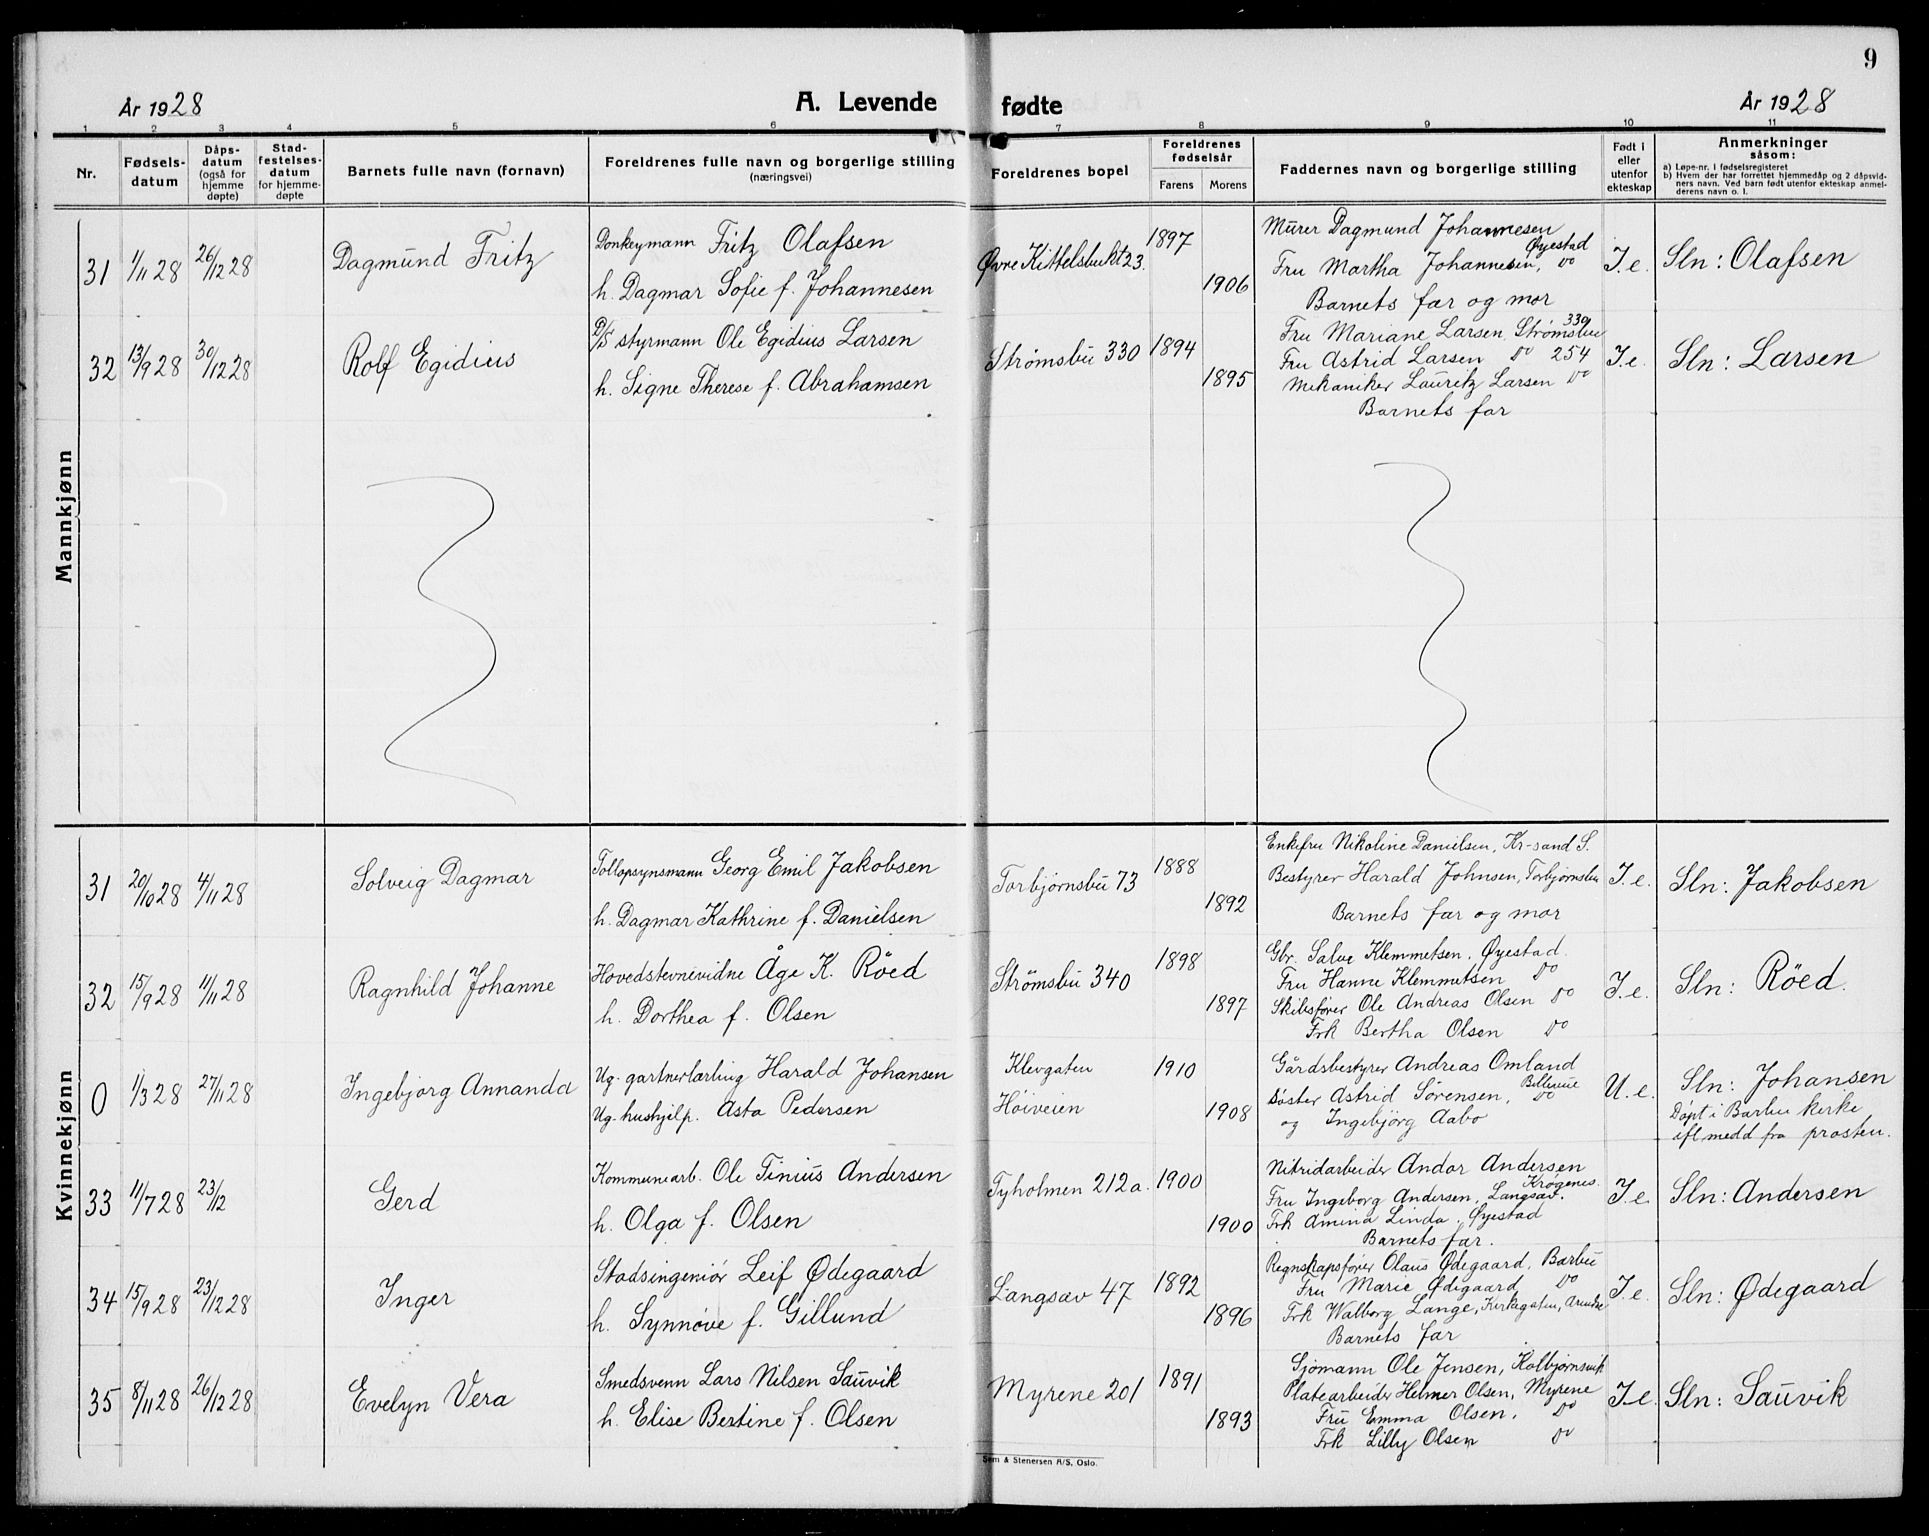 9
År 1928
A. Levende fødte
År 1928
1 2 3 4 5 6 7 8 9 10 11
Nr.
Fødsels-
datum
Dåps-
datum
(også for
hjemme
døpte)
Stad-
festelses-
datum
for hjemme-
døpte
Barnets fulle navn (fornavn)
Foreldrenes fulle navn og borgerlige stilling
(næringsvei)
Foreldrenes bopel
Foreldrenes
fødselsår
Farens Morens
Faddernes navn og borgerlige stilling
Født i
eller
utenfor
ekteskap
Anmerkninger
såsom:
a) Løpe-nr. i fødselsregisteret
b) Hvem der har forrettet hjemmedåp og 2 dåpsvid-
ners navn. Ved barn født utenfor ekteskap anmel-
derens navn o. l.
Mannkjønn
31 1/11 28 26/12 28
Dagmund Fritz
Donkeymann Fritz Olafsen
h. Dagmar Sofie f. Johannesen
Øvre Kittelsbukt 23.
1897
1906
Murer Dagmund Johannesen
Øyestad
Fru Martha Johannesen, do
Barnets far og mor
I.e.
Sln: Olafsen
32 13/9 28 30/12 28
Rolf Egidius
D/S styrmann Ole Egidius Larsen
h. Signe Therese f. Abrahamsen
Strømsbu 330
1894
1895
330
Fru Mariane Larsen, Strømsbu
Fru Astrid Larsen do 254
Mekaniker Lauritz Larsen do
Barnets far
I.e.
Sln: Larsen
Kvinnekjønn
31 20/10 28 4/11 28
Solveig Dagmar
Tollopsynsmann Georg Emil Jakobsen
h. Dagmar Kathrine f. Danielsen
Torbjørnsbu 73
1888
1892
Enkefru Nikoline Danielsen, Kr-sand S.
Bestyrer Harald Johnsen, Torbjørnsbu
Barnets far og mor
I.e.
Sln: Jakobsen
32 15/9 28 11/11 28
Ragnhild Johanne
Hovedstevnevidne Åge K. Röed
h. Dorthea f. Olsen
Strømsbu 340
1898
1897
Gbr. Salve Klemmetsen, Øyestad.
Fru Hanne Klemmetsen do
Skibsfører Ole Andreas Olsen do
Frk Bertha Olsen do
I.e.
Sln: Röed.
0 1/3 28 27/11 28
Ingebjørg Annanda
Ug. gartnerlærling Harald Johansen
Ug. hushjelp. Asta Pedersen
Klevgaten
Høiveien
1910
1908
Gårdsbestyrer Andreas Omland
Bellevue
Søster Astrid Sørensen, do
og Ingebjørg Aabo
U.e.
Sln: Johansen
Døpt i Barbu kirke
ifl medd fra prosten.
33 11/7 28 23/12
Gerd
Kommunearb. Ole Tinius Andersen
h. Olga f. Olsen
Tyholmen 212a.
1900
1900
Nitridarbeider Andor Andersen
Krøgenes.
Fru Ingeborg Andersen, Langsæv.
Frk Amina Linda, Øyestad
Barnets far.
I.e.
Sln: Andersen
34 15/9 28 23/12 28
Inger
Stadsingeniør Leif Ødegaard
h. Synnøve f. Gillund
Langsæv 47
1892
1896
Regnskapsfører Olaus Ødegaard, Barbu
Fru Marie Ødegaard do
Frk Walborg Lange, Kirkegaten, Arendal
Barnets far
I.e.
Sln: Ødegaard
35 8/11 28 26/12 28
Evelyn Vera
Smedsvenn Lars Nilsen Sauvik
h. Elise Bertine f. Olsen
Myrene 201
1891
1893
Sjømann Ole Jensen, Kolbjørnsvik
Platearbeider Helmer Olsen, Myrene
Fru Emma Olsen, do
Frk Lilly Olsen do
I.e.
Sln: Sauvik
Sem & Stenersen A/S, Oslo.